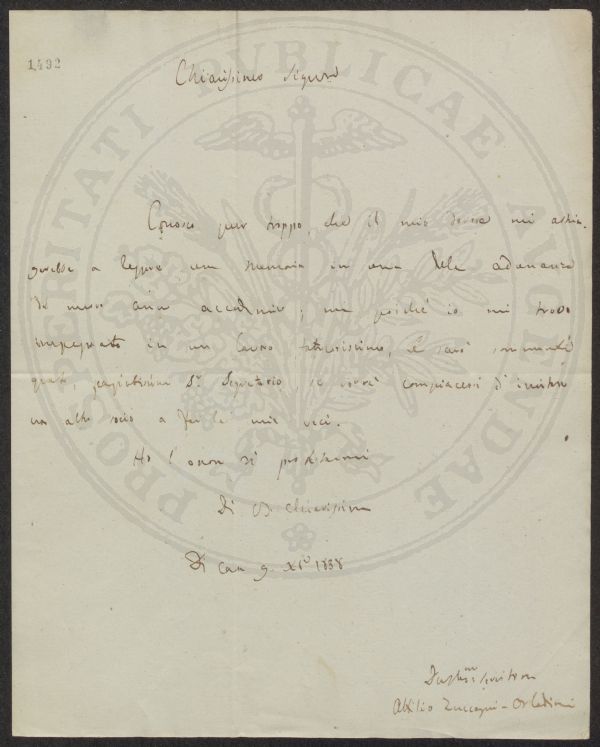 1492
PROSPERITATI PUBLICAE AUGENDAE
Chiarissimo Signore
Conosco pur troppo, che il mio dovere mi astrin-
gerebbe a leggere una Memoria in una delle adunanze
di nuovo anno accademico; ma poiché io mi trovo
impegnato in un lavoro faticosissimo, Le sarò sommamte
grato, Sr. Segretario, se vorrà compiacersi d'invitare
un altro socio a far le mie veci.
Ho l'onore di protestarmi
Di VS. Chiarissima
Di Casa 9. 1838
servitore
Attilio Zuccagni-Orlandini